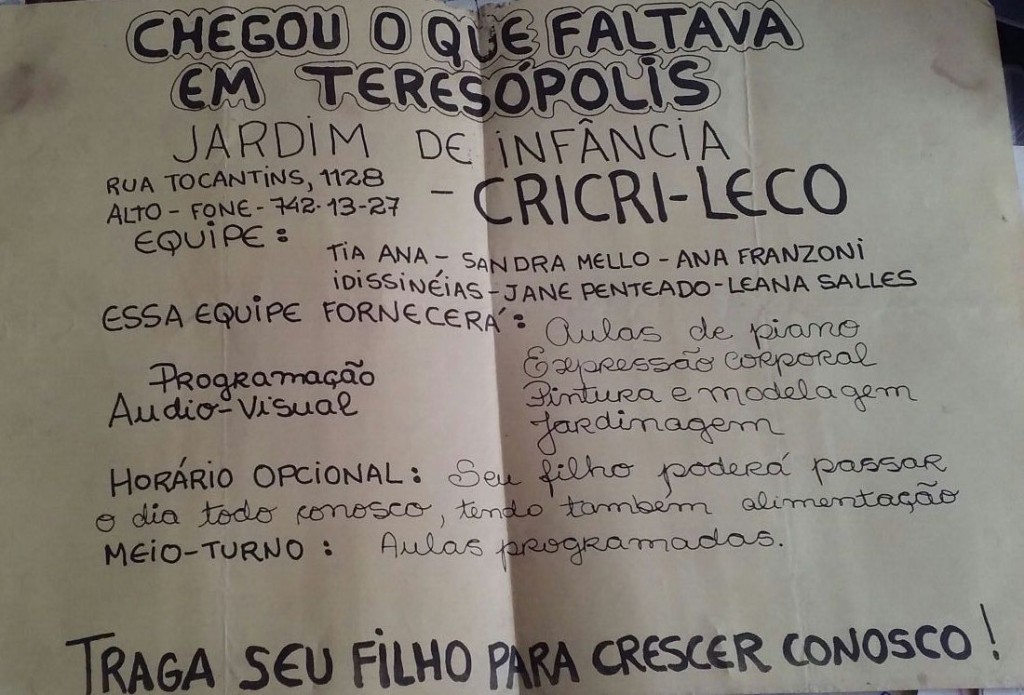 CHEGOU O QUE FALTAVA
EM TERESÓPOLIS
JARDIM DE INFÂNCIA
RUA TOCANTINS, 1128
ALTO - FONE - 742-13-27
- CRICRI-LECO
EQUIPE:
TIA ANA - SANDRA MELLO - ANA FRANZONI
IDISSINÉIAS - JANE PENTEADO - LEANA SALLES
ESSA EQUIPE FORNECERÁ:
Aulas de piano
Expressão corporal
Pintura e modelagem
Jardinagem
Programação
Audio-Visual
HORÁRIO OPCIONAL: Seu filho poderá passar
o dia todo conosco, tendo também alimentação
MEIO-TURNO: Aulas programadas.
TRAGA SEU FILHO PARA CRESCER CONOSCO!